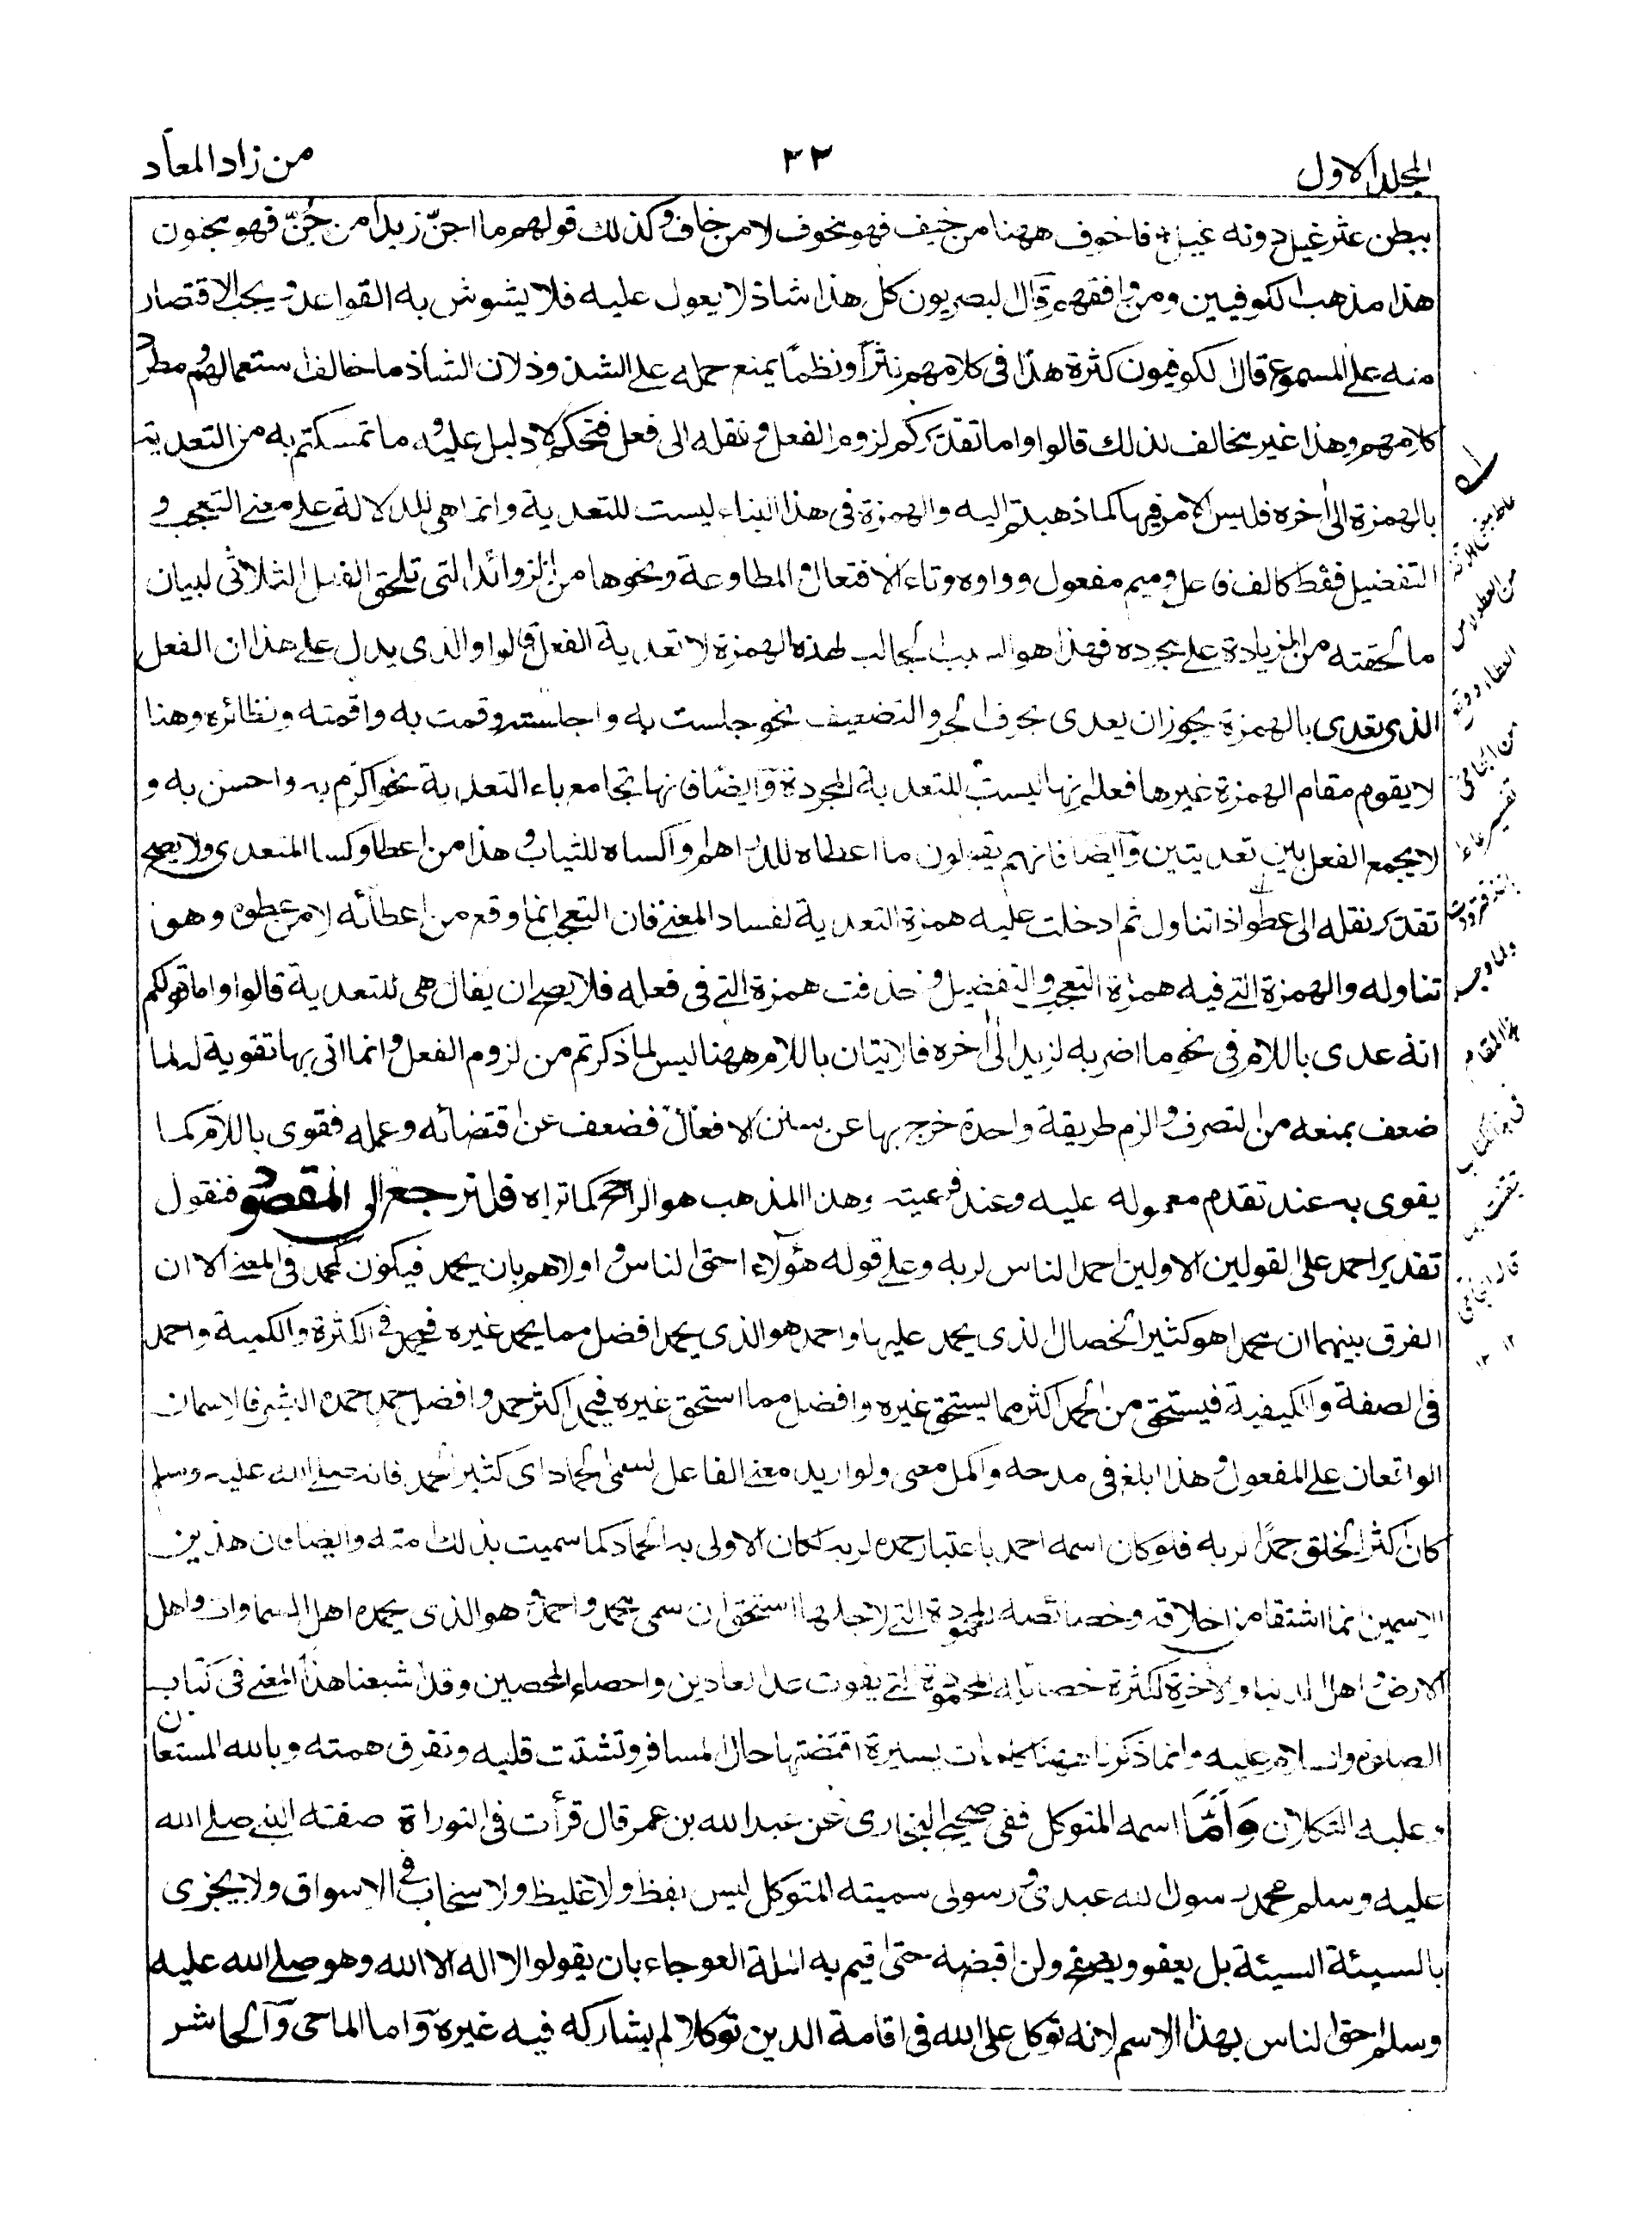 المجلد الاول
٣٣
من زاد المعاد
ببطن عثر غيل دونه غيل فاخوف ههنا من خيف فهو مخوف لا من خاف وكذلك قولهم ما اجنّ زيدا من جُنّ فهو مجنون
هذا مذهب الكوفيين ومن وافقهم قال البصريون كل هذا شاذ لا يعول عليه فلا يشوش به القواعد ويجب الاقتصار
منه على المسموع قال الكوفيون كثرة هذا فى كلامهم نثرًا ونظمًا يمنع حمله على الشذوذ لان الشاذ ما خالف استعمالهم ومطرد
كلامهم وهذا غير مخالف لذلك قالوا واما تقديركم لزوم الفعل ونقله الى فعل فتحكم لا دليل عليه وما تمسكتم به من التعدية
بالهمزة الى اٰخره فليس الامر فيها كما ذهبتم اليه والهمزة فى هذا البناء ليست للتعدية وانما هى للدلالة على معنى التعجب و
التفضيل فقط كالف فاعل وميم مفعول وواوه وتاء الافتعال والمطاوعة ونحوها من الزوائد التى تلحق الفعل الثلاثى لبيان
ما لحقته من الزيادة على مجرده فهذا هو السبب الجالب لهذه الهمزة لا تعدية الفعل قالوا والذى يدل على هذا ان الفعل
الذى تعدى بالهمزة يجوز ان يعدى بحرف الجر والتضعيف نحو جلست به واجلسته وقمت به واقمته ونظائره وهنا
لا يقوم مقام الهمزة غيرها فعلم انها ليست للتعدية المجردة وايضا فانها تجامع باء التعدية نحو اكرم به واحسن به و
لا يجمع الفعل بين تعديتين وايضا فانهم يقولون ما اعطاه للدراهم واكساه للثياب وهذا من اعطا وكسا المتعدى ولا يصح
تقدير نقله الى عطو اذا تناول ثم ادخلت عليه همزة التعدية لفساد المعنى فان التعجب انما وقع من اعطائه لا من عطوه وهو
تناوله والهمزة التى فيه همزة التعجب والتفضيل وحذفت همزة التى فى فعله فلا يصح ان يقال هى للتعدية قالوا واما قولكم
انه عدى باللام فى نحو ما اضربه لزيد الى اٰخره فالاتيان باللام ههنا ليس لما ذكرتم من لزوم الفعل وانما اتى بها تقوية له لما
ضعف بمنعه من التصرف والزم طريقة واحدة خرج بها عن سنن الافعال فضعف عن اقتضائه وعمله فقوى باللام كما
يقوى به عند تقدم معموله عليه وعند فرعيته وهذا المذهب هو الراجح كما تراه فلنرجع الى المقصود فنقول
تقدير احمد على القولين الاولين احمد الناس لربه وعلى قوله هؤلاء احق الناس واولاهم بان يحمد فيكون كمحمد فى المعنى الا ان
الفرق بينهما ان محمدا هو كثير الخصال الذى يحمد عليها واحمد هو الذى يحمد افضل مما يحمد غيره فمحمد فى الكثرة والكمية واحمد
فى الصفة والكيفية فيستحق من الحمد اكثر مما يستحق غيره وافضل مما استحق غيره فيحمد اكثر حمد وافضل حمد حمده البشر فالاسمان
الواقعان على المفعول وهذا ابلغ فى مدحه واكمل معنى ولو اريد معنى الفاعل لسمى الحماد اى كثير الحمد فانه صلى الله عليه وسلم
كان اكثر الخلق حمدًا لربه فلو كان اسمه احمد باعتبار حمده لربه لكان الاولى به الحماد كما سميت بذلك امته وايضا فان هذين
الاسمين انما اشتقا من اخلاقه وخصائصه المحمودة التى لاجلها استحق ان سمى محمد واحمد وهو الذى يحمده اهل السماوات واهل
الارض واهل الدنيا والاخرة لكثرة خصائله المحمودة التى يفوت عد العادين واحصاء المحصين وقد اشبعنا هذا المعنى فى كتاب
الصلوة والسلام عليه وانما ذكرنا ههنا كلمات يسيرة اقتضتها حال المسافر وتشتت قلبه وتفرق همته وبالله المستعان
وعليه التكلان وَاَمَّا اسمه المتوكل ففى صحيح البخارى عن عبد الله بن عمر قال قرأت فى التوراة صفته النبى صلى الله
عليه وسلم محمد رسول الله عبدى ورسولى سميته المتوكل ليس بفظ ولا غليظ ولا سخاب فى الاسواق ولا يجزى
بالسيئة السيئة بل يعفو ويصفح ولن اقبضه حتى اقيم به الملة العوجاء بان يقولوا لا اله الا الله وهو صلى الله عليه
وسلم احق الناس بهذا الاسم لانه توكل على الله فى اقامة الدين توكلا لم يشاركه فيه غيره واما الماحى والحاشر